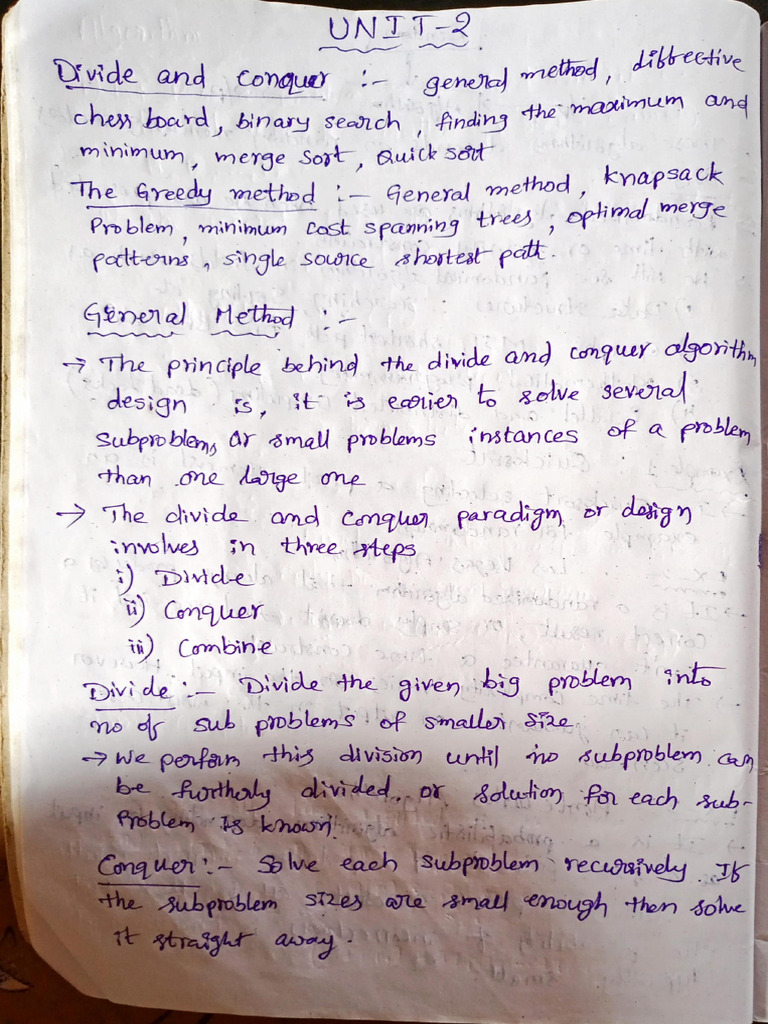 UNIT-2
Divide and conquer :- general method, diffective
chess board, binary search, finding the maximum and
minimum, merge sort, Quick sort
The Greedy method :- General method, knapsack
Problem, minimum cost spanning trees, optimal merge
patterns, single source shortest path.
General Method :-
→ The principle behind the divide and conquer algorithm
design is, it is earier to solve several
subproblems or small problems instances of a problem
than one large one
→ The divide and conquer paradigm or design
involves in three steps
i) Divide
ii) Conquer
iii) Combine
Divide :- Divide the given big problem into
no of sub problems of smaller size
→ We perform this division until no subproblem can
be furtherly divided. or solution for each sub-
Problem Is known.
Conquer :- Solve each subproblem recursively If
the subproblem sizes are small enough then solve
it straight away.